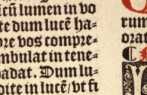 ſicū lumen in vo
te dum lucē ha⸗
re vos compre⸗
mbulat in tene⸗
vadat. Dum lu⸗
dite in lucē/ vt fi
rum
orat